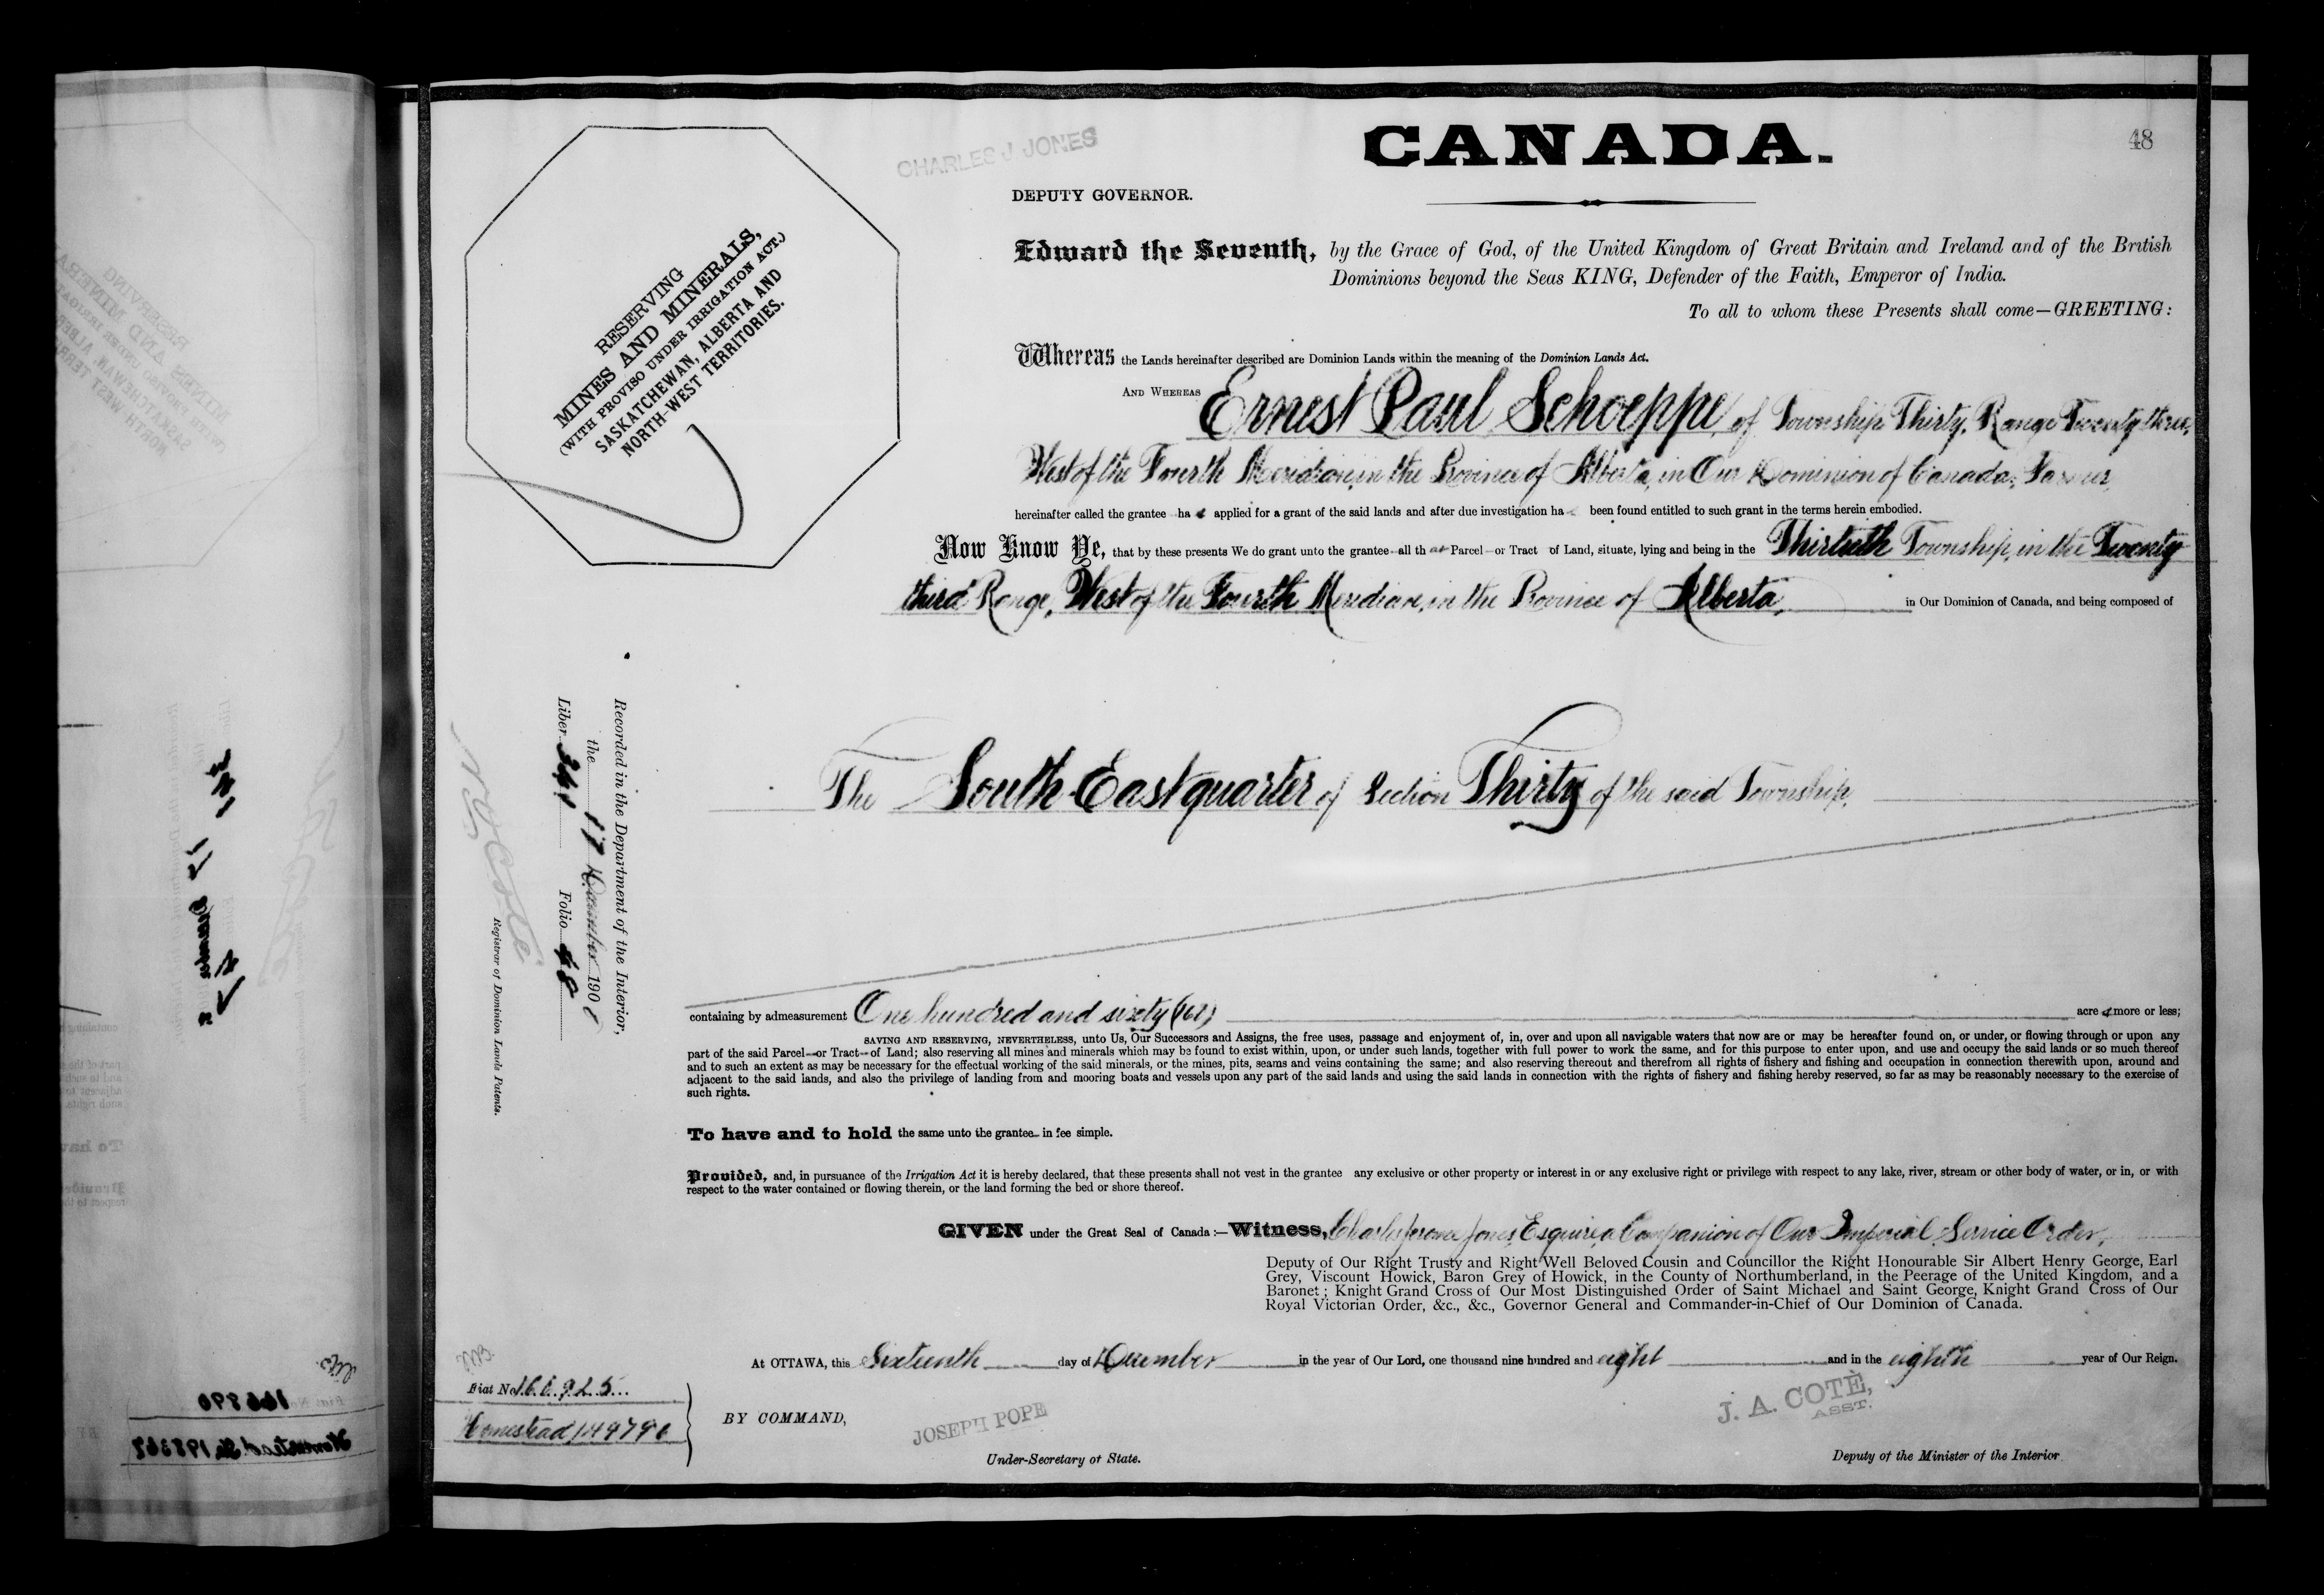 CANADA.
48
CHARLES J JONES
DEPUTY GOVERNOR.
RESERVING
MINES AND MINERALS,
(WITH PROVISO UNDER IRRIGATION ACT.)
SASKATCHEWAN, ALBERTA AND
NORTH-WEST TERRITORIES.
Edward the Seventh, by the Grace of God, of the United Kingdom of Great Britain and Ireland and of the British
Dominions beyond the Seas KING, Defender of the Faith, Emperor of India.
To all to whom these Presents shall come—GREETING:
Whereas the Lands hereinafter described are Dominion Lands within the meaning of the Dominion Lands Act.
AND WHEREAS Ernest Paul Schoeppe, of Township Thirty, Range Twenty three,
West of the Fourth Meridian, in the Province of Alberta, in Our Dominion of Canada, Farmer,
hereinafter called the grantee has applied for a grant of the said lands and after due investigation has been found entitled to such grant in the terms herein embodied.
Now Know Ye, that by these presents We do grant unto the grantee all that Parcel or Tract of Land, situate, lying and being in the Thirtieth Township, in the Twenty
third Range, West of the Fourth Meridian, in the Province of Alberta, in Our Dominion of Canada, and being composed of
The South East quarter of Section Thirty of the said Township.
Recorded in the Department of the Interior,
the 17 December 1908
Liber 341 Folio 48
N O Coté
Registrar of Dominion Lands Patents.
containing by admeasurement One hundred and sixty (160) acres more or less;
SAVING AND RESERVING, NEVERTHELESS, unto Us, Our Successors and Assigns, the free uses, passage and enjoyment of, in, over and upon all navigable waters that now are or may be hereafter found on, or under, or flowing through or upon any
part of the said Parcel or Tract of Land; also reserving all mines and minerals which may be found to exist within, upon, or under such lands, together with full power to work the same, and for this purpose to enter upon, and use and occupy the said lands or so much thereof
and to such an extent as may be necessary for the effectual working of the said minerals, or the mines, pits, seams and veins containing the same; and also reserving thereout and therefrom all rights of fishery and fishing and occupation in connection therewith upon, around and
adjacent to the said lands, and also the privilege of landing from and mooring boats and vessels upon any part of the said lands and using the said lands in connection with the rights of fishery and fishing hereby reserved, so far as may be reasonably necessary to the exercise of
such rights.
To have and to hold the same unto the grantee in fee simple.
Provided, and, in pursuance of the Irrigation Act it is hereby declared, that these presents shall not vest in the grantee any exclusive or other property or interest in or any exclusive right or privilege with respect to any lake, river, stream or other body of water, or in, or with
respect to the water contained or flowing therein, or the land forming the bed or shore thereof.
GIVEN under the Great Seal of Canada:—Witness, Charles Jerome Jones, Esquire, a Companion of Our Imperial Service Order,
Deputy of Our Right Trusty and Right Well Beloved Cousin and Councillor the Right Honourable Sir Albert Henry George, Earl
Grey, Viscount Howick, Baron Grey of Howick, in the County of Northumberland, in the Peerage of the United Kingdom, and a
Baronet; Knight Grand Cross of Our Most Distinguished Order of Saint Michael and Saint George, Knight Grand Cross of Our
Royal Victorian Order, &c., &c., Governor General and Commander-in-Chief of Our Dominion of Canada.
At OTTAWA, this Sixteenth day of December in the year of Our Lord, one thousand nine hundred and eight and in the eighth year of Our Reign.
Fiat No 166925
Homestead
BY COMMAND,
JOSEPH POPE
Under-Secretary of State.
J. A. COTÈ,
ASST.
Deputy of the Minister of the Interior